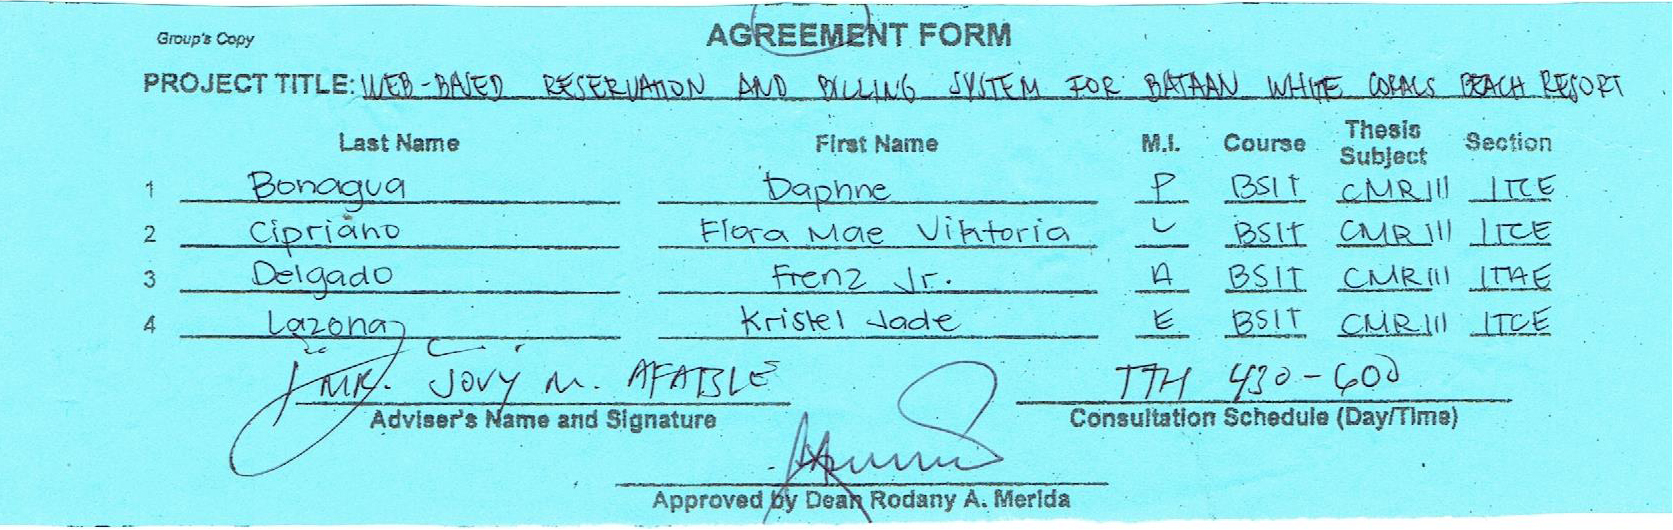 Group's Copy
AGREEMENT FORM
PROJECT TITLE: WEB-BASED RESERVATION AND BILLING SYSTEM FOR BATAAN WHITE CORALS BEACH RESORT
Last Name First Name M.I. Course Thesis Subject Section
1 Bonagua Daphne P BSIT CMRIII ITCE
2 Cipriano Flora Mae Viktoria C BSIT CMRIII ITCE
3 Delgado Frenz Jr. A BSIT CMRIII ITAE
4 Lazona Kristel Jade E BSIT CMRIII ITCE
MR. JOVY M. AFABLE TTH 430-600
Adviser's Name and Signature Consultation Schedule (Day/Time)
Approved by Dean Rodany A. Merida